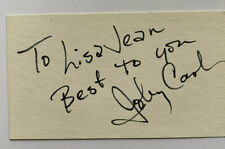 To Lisa Jean
Best to you
Johny Cash